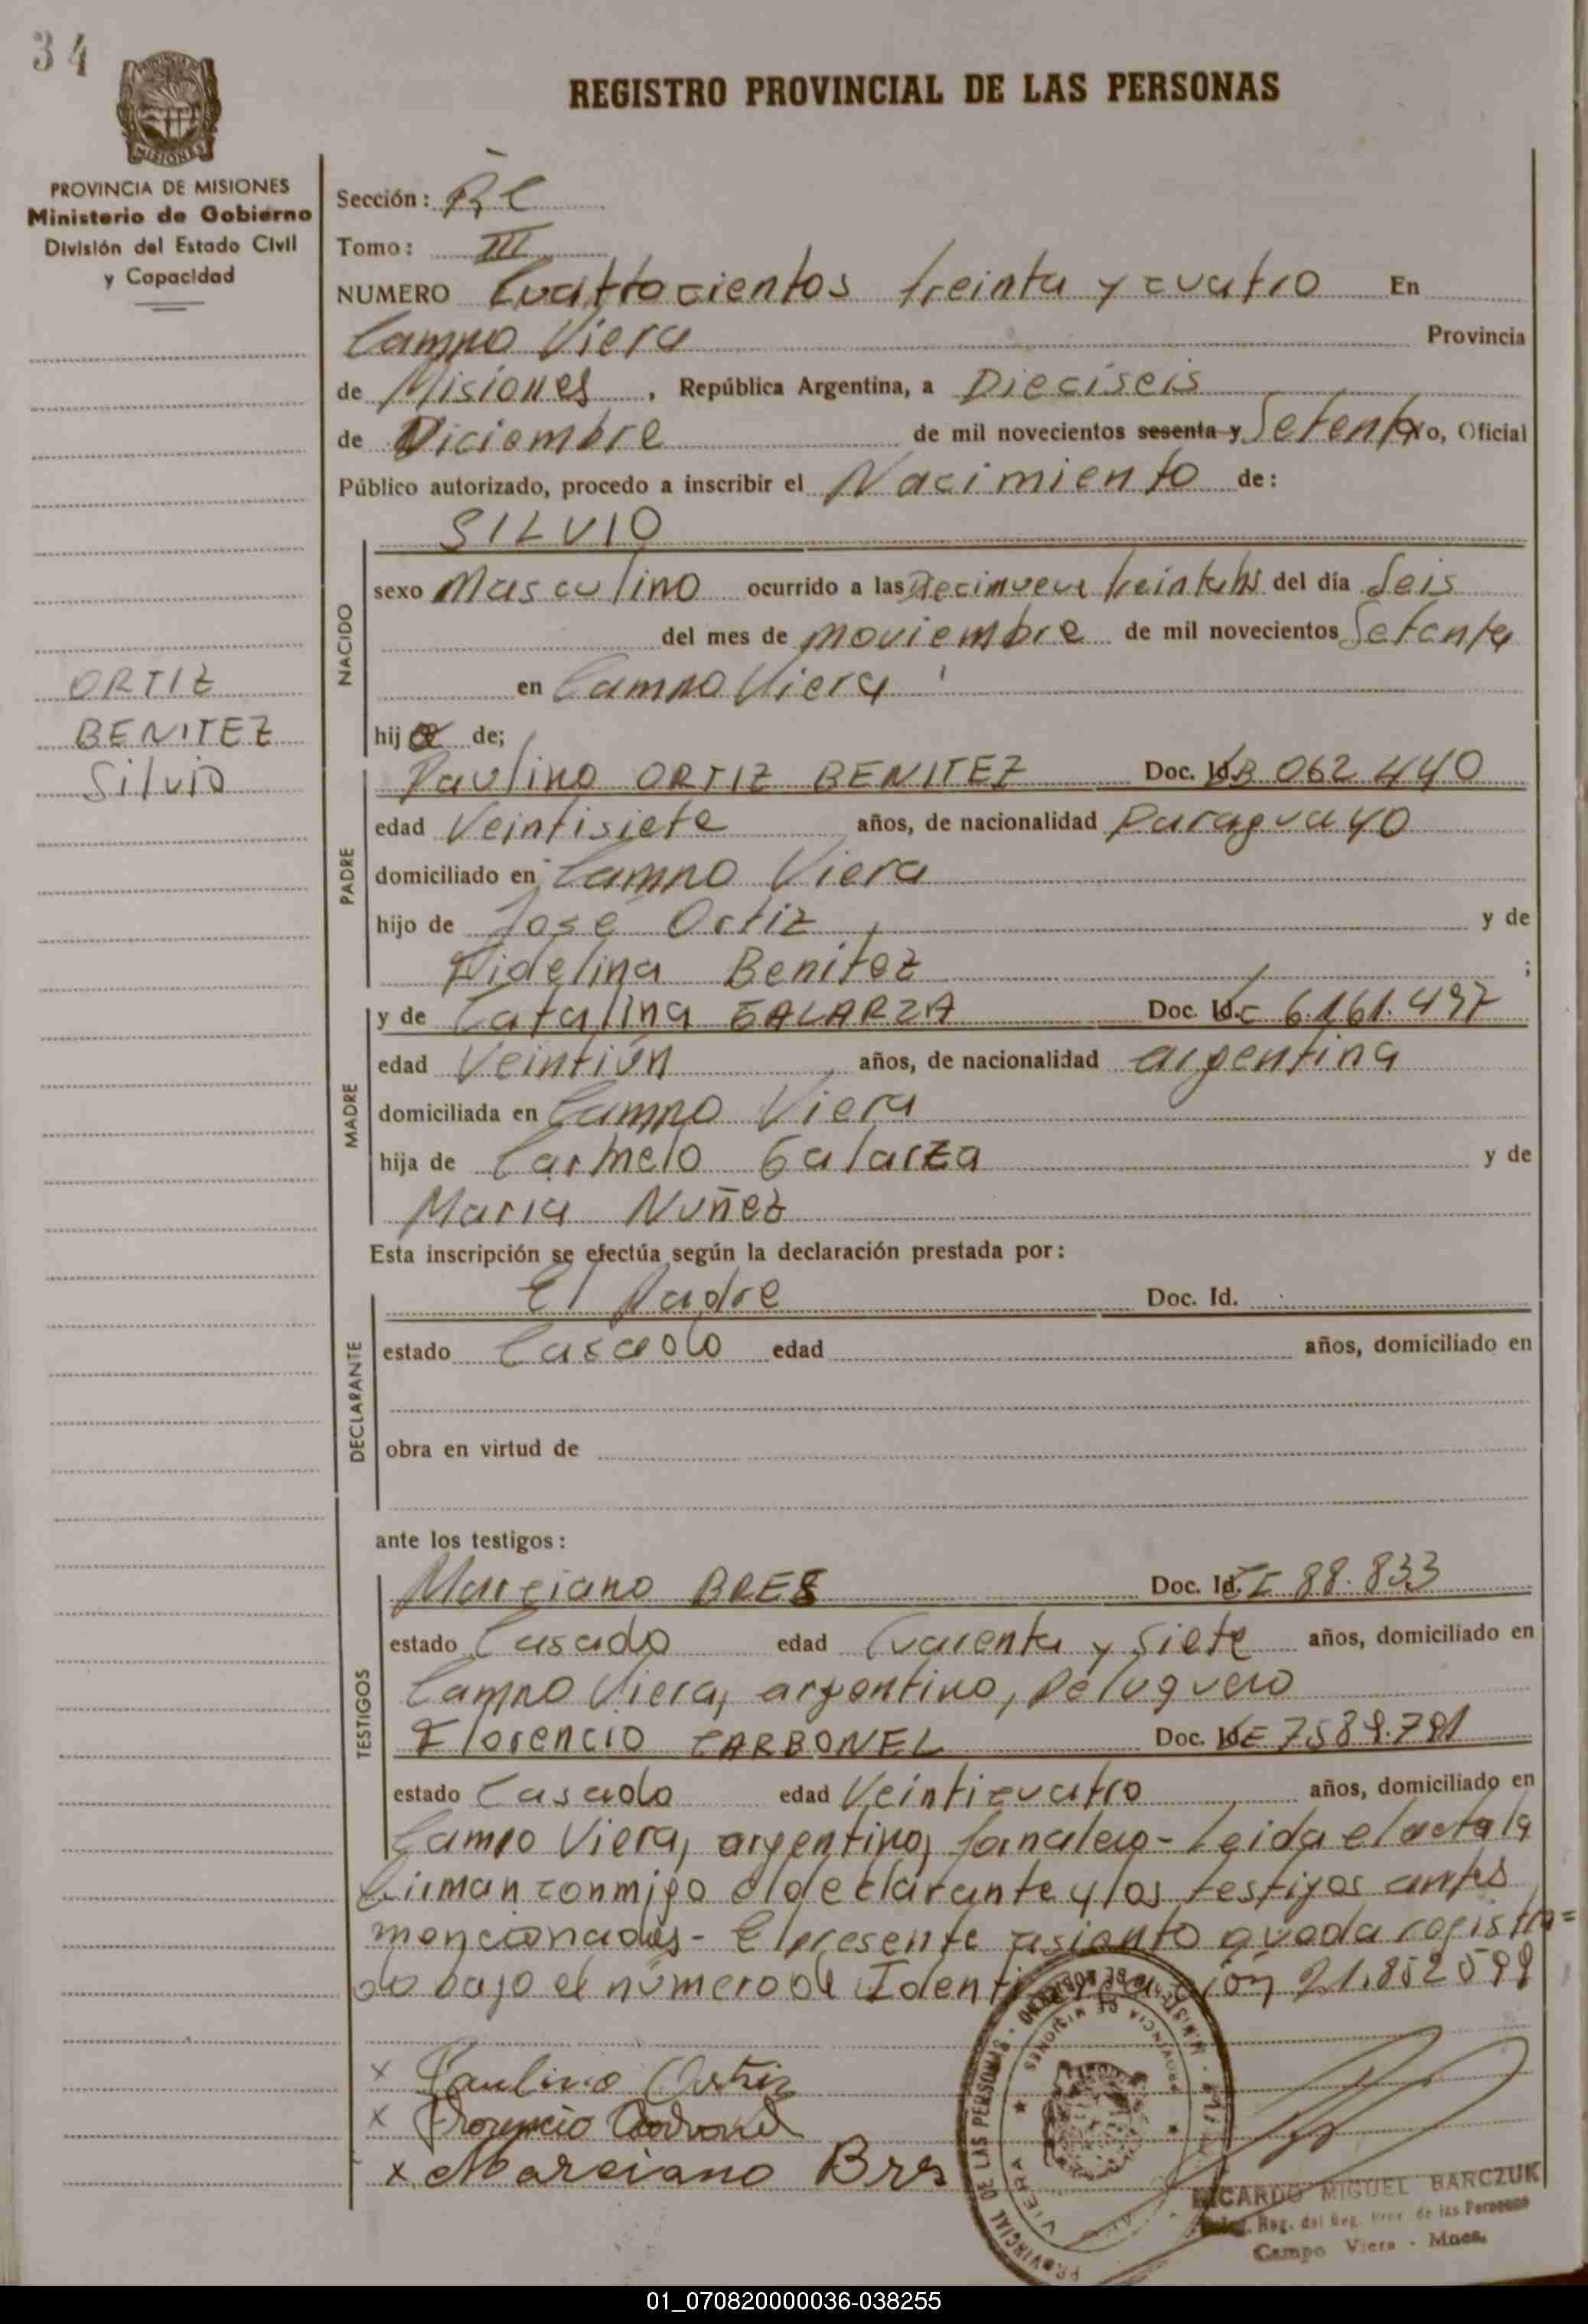 34
REGISTRO PROVINCIAL DE LAS PERSONAS
MISIONES
PROVINCIA DE MISIONES
Ministerio de Gobierno
División del Estado Civil
y Capacidad
ORTIZ
BENITEZ
Silvio
Sección:
Tomo: III
NUMERO Cuatrocientos treinta y cuatro En
Campo Viera Provincia
de Misiones, República Argentina, a Dieciseis
de Diciembre de mil novecientos sesenta y Setenta yo, Oficial
Público autorizado, procedo a inscribir el Nacimiento de:
SILVIO
NACIDO
sexo Masculino ocurrido a las del día Seis
del mes de Noviembre de mil novecientos Setenta
en Campo Viera
hijo de;
PADRE
Paulino ORTIZ BENITEZ Doc. Id. 062 440
edad Veintisiete años, de nacionalidad Paraguayo
domiciliado en Campo Viera
hijo de José Ortiz y de
Fidelina Benitez ;
MADRE
y de Catalina GALARZA Doc. Id. C 6.161.497
edad Veintiún años, de nacionalidad argentina
domiciliada en Campo Viera
hija de Carmelo Galarza y de
Maria Nuñez
Esta inscripción se efectúa según la declaración prestada por:
DECLARANTE
El Padre Doc. Id.
estado Casado edad años, domiciliado en
obra en virtud de
ante los testigos:
TESTIGOS
Marciano BRES Doc. Id. 88.833
estado Casado edad Cuarenta y Siete años, domiciliado en
Campo Viera, argentino, Peluquero
Florencio CARBONEL Doc. Id. 7589.791
estado Casado edad Veinticuatro años, domiciliado en
Campo Viera, argentino, Jornalero - Leida el acta la
firman conmigo el declarante y los testigos antes
mencionados - El presente asiento queda registra=
do bajo el número de Identificación 21.852599
x Paulino Ortiz
x Florencio Carbonel
x Marciano Bres
PROVINCIAL DE LAS PERSONAS
PROVINCIA DE MISIONES
VIERA
RICARDO MIGUEL BARCZUK
Reg. del Reg. Prov. de las Personas
Campo Viera - Mnes.
01_070820000036-038255